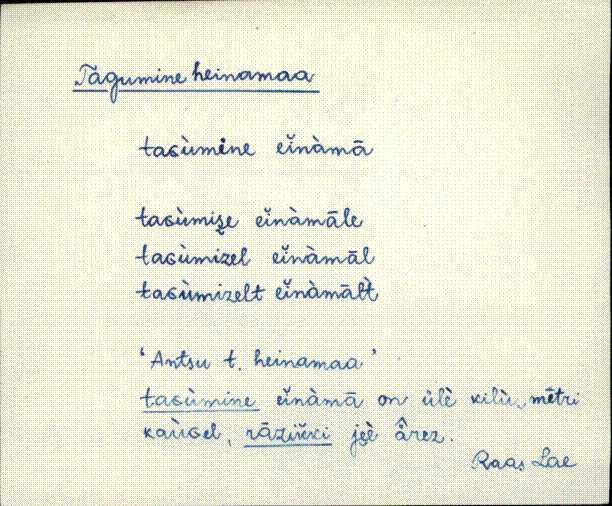 Tagumine heinamaa
taɢùmine eĭnàmā
taɢùmiẓe eĭnàmāle
taɢùmizel eĭnàmāl
taɢùmizelt eĭnàmāl̀t
‘Antsu t. heinamaa’
taɢùmine eĭnàmā on ülè kilùmētri
kaùɢel, rāziŭki jẹè ǟrez.
Raas Lae